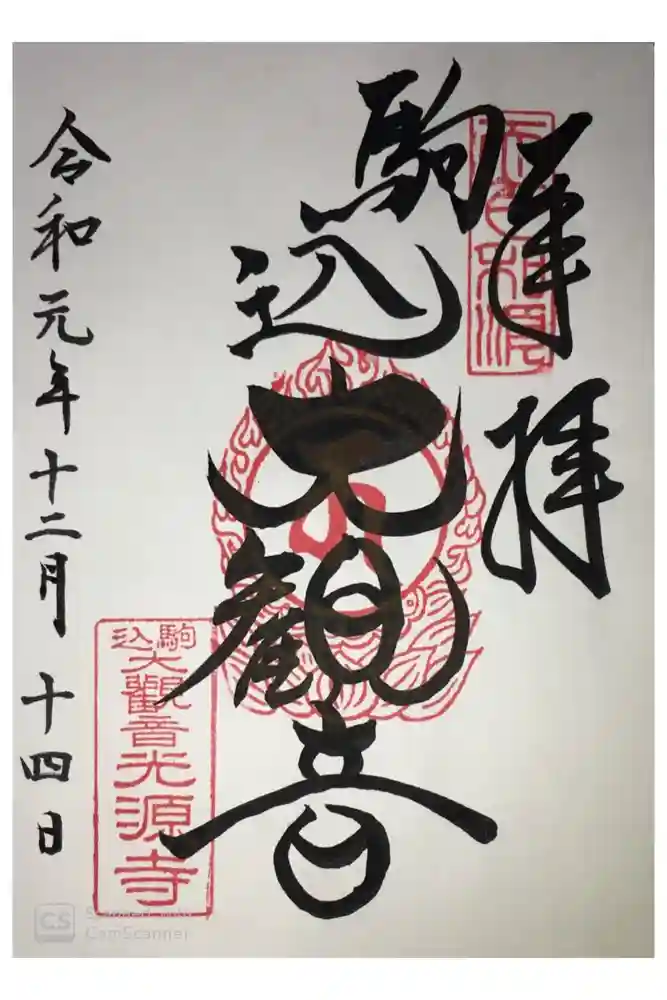 奉拝
駒込大観音
駒込
大觀音光源寺
令和元年十二月十四日
CS
Scanned with
CamScanner